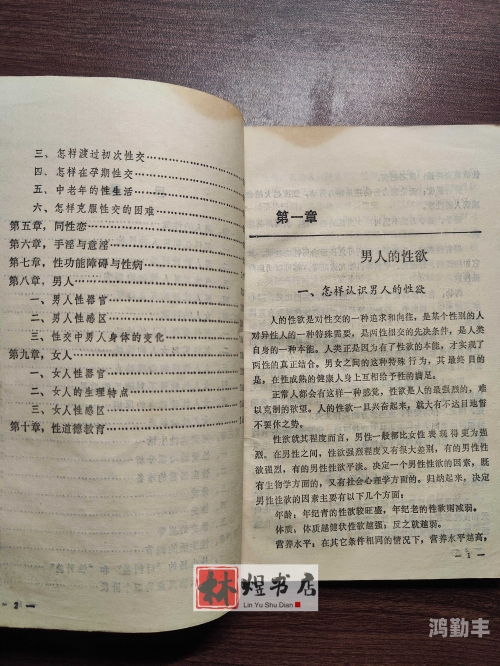 三、怎样渡过初次性交
四、怎样在孕期性交
五、中老年的性生活
六、怎样克服性交的困难
第五章，同性恋
第六章，手淫与意淫
第七章，性功能障碍与性病
第八章，男人
一、男人性器官
二、男人性感区
三、性交中男人身体的变化
第九章，女人
一、女人性器官
二、女人的生理特点
三、女人性感区
第十章，性道德教育
— 2 —
第一章
男人的性欲
一、怎样认识男人的性欲
人的性欲是对性交的一种追求和向往，是某个性别的人
对异性人的一种特殊需要，是两性相交的先决条件，是人类
自身的一种本能。人类正是因为有了性欲的本能，才实现了
两性的真正结合。男女之间的这种特殊行为，其最终目的
是，在性成熟的健康人身上互相给予性的满足。
正常人都会有这样一种感觉，性欲是人的最强烈的，难
以克制的欲望。人的性欲一旦兴奋起来，就大有不达目地誓
不罢休之势。
性欲就其程度而言，男性一般都比女性表现得更为强
烈。在男性之间，性欲强烈程度又有很大差别，有的男性性
欲强烈，有的男性性欲平淡。决定一个男性性欲的因素，既
有生物学方面的，又有社会心理学方面的。归结起来，决定
男性性欲的因素主要有以下几个方面：
年龄：年纪青的性欲较旺盛，年纪老的性欲则减弱。
体质：体质越健状性欲越强；反之就越弱。
营养水平：在其它条件相同的情况下，营养水平越高，
— 1 —
林煜书店
Lin Yu Shu Dian
鸿勤丰